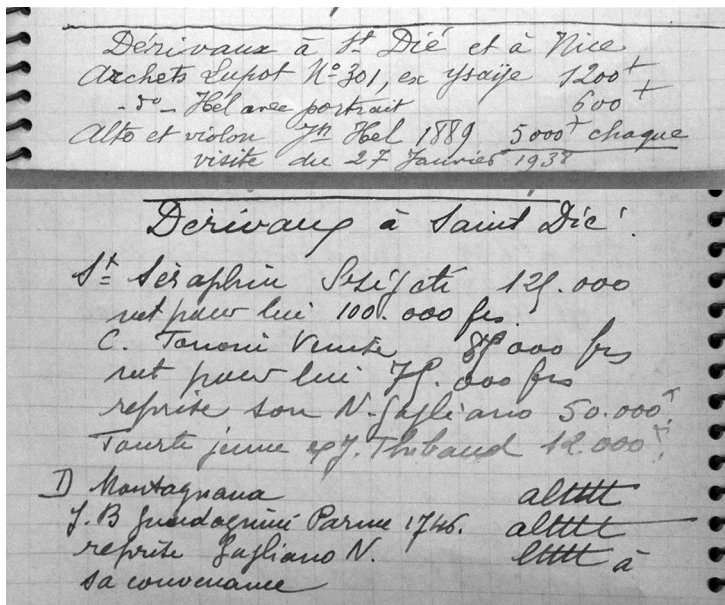 Dérivaux à St Dié et à Nice
Archets Lupot No 301, ex Ysaÿe 1200+
-do- Hel avec portrait 600+
Alto et violon Jh Hel 1889 5000+ chaque
visite du 27 Janvier 1938
Dérivaux à Saint Dié.
St Séraphin 125.000
net pour lui 100.000 frs
C. Tononi Venise 85.000 frs
net pour lui 75.000 frs
reprise son N. Gagliano 50.000+
Tourte jeune ex J. Thibaud 12.000+
D Montagnana altttt
J. B Guadagnini Parme 1746. altttt
reprise Gagliano N. ltttt à
sa convenance